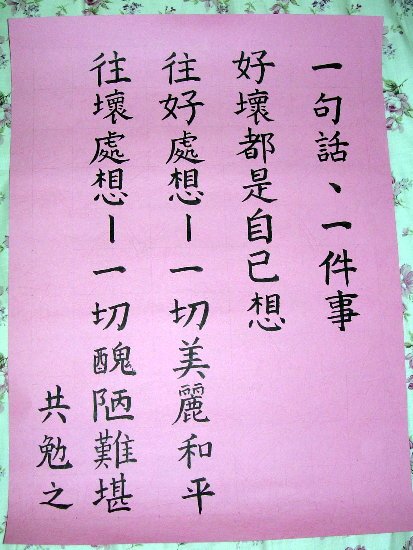 一句話、一件事
好壞都是自己想
往好處想－一切美麗和平
往壞處想－一切醜陋難堪
共勉之